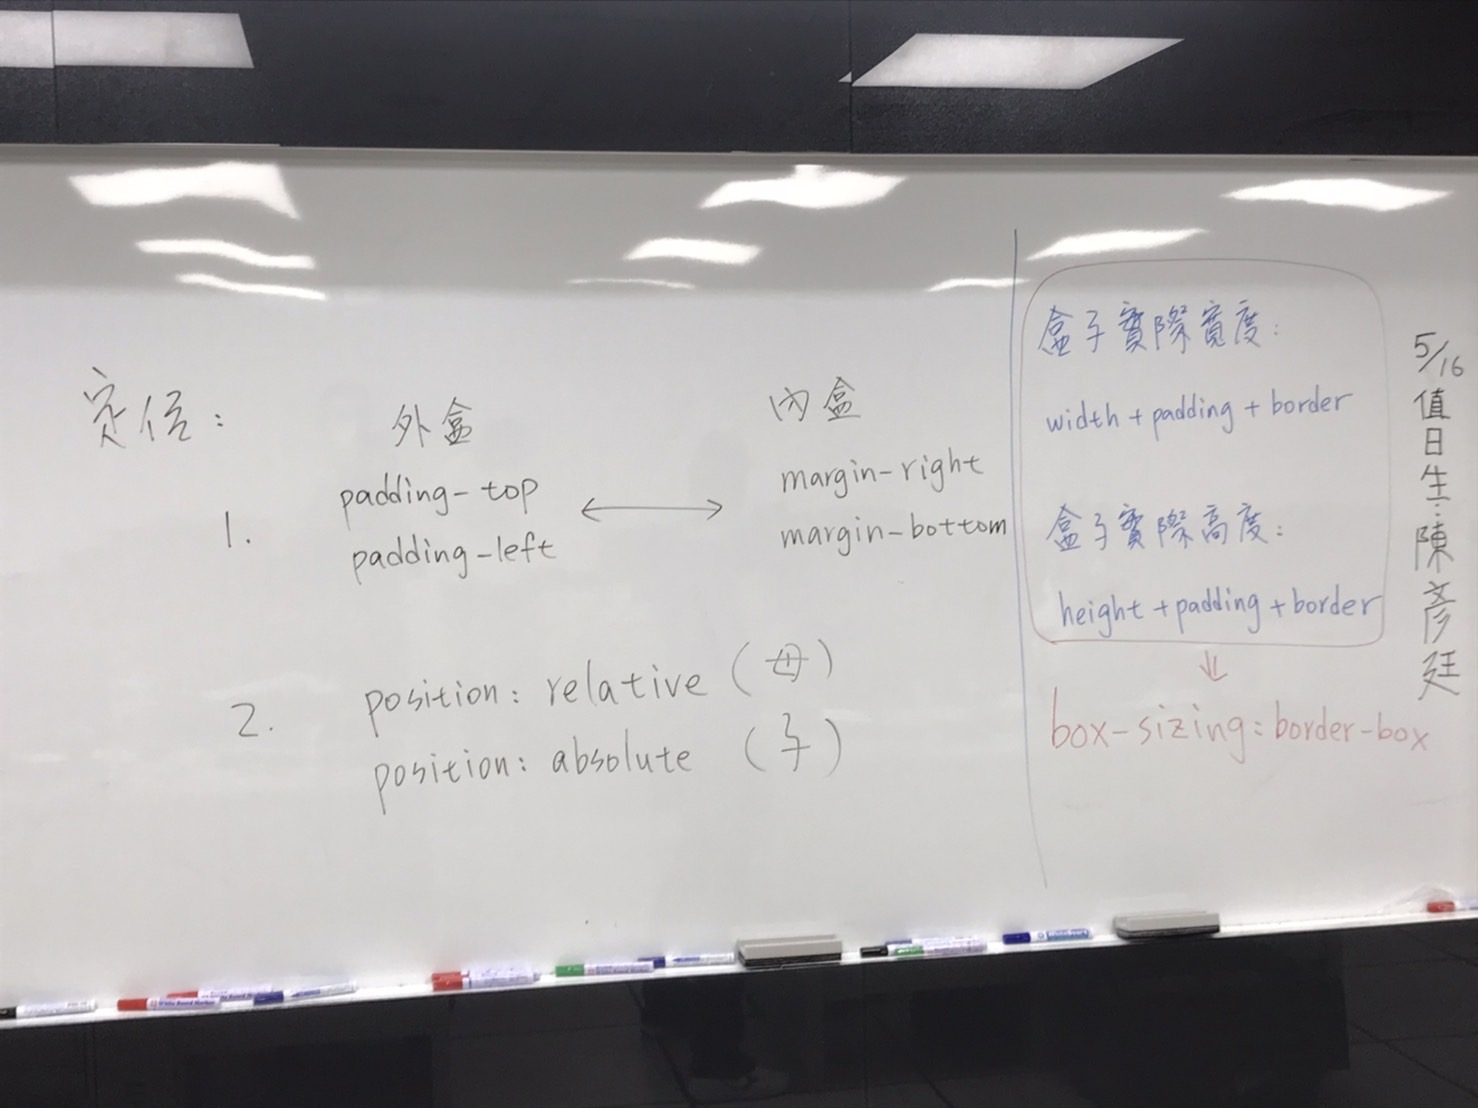 定位:
外盒
內盒
1.
padding-top
padding-left
margin-right
margin-bottom
2.
position: relative (母)
position: absolute (子)
盒子實際寬度:
width+padding+border
盒子實際高度:
height+padding+border
box-sizing:border-box
5/16值日生:陳彥廷